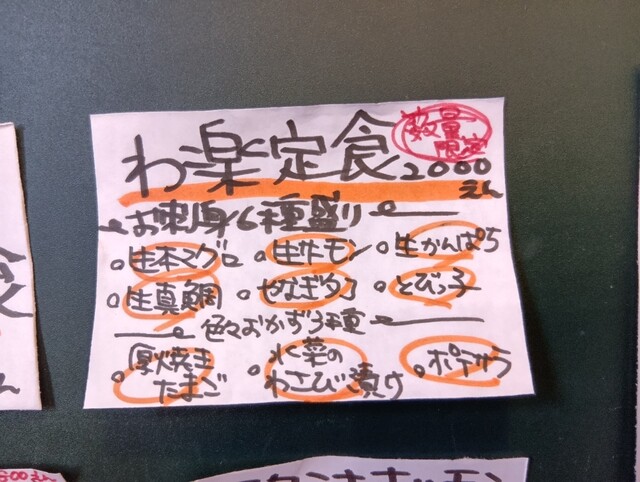 数量
限定
わ楽定食 2000
えん
お刺身6種盛り
○生本マグロ ○生サーモン ○生かんぱち
○生真鯛 ○とびっ子
色々おかず3種
○厚焼き
たまご
○水菜の
わさび漬け
○ポテサラ